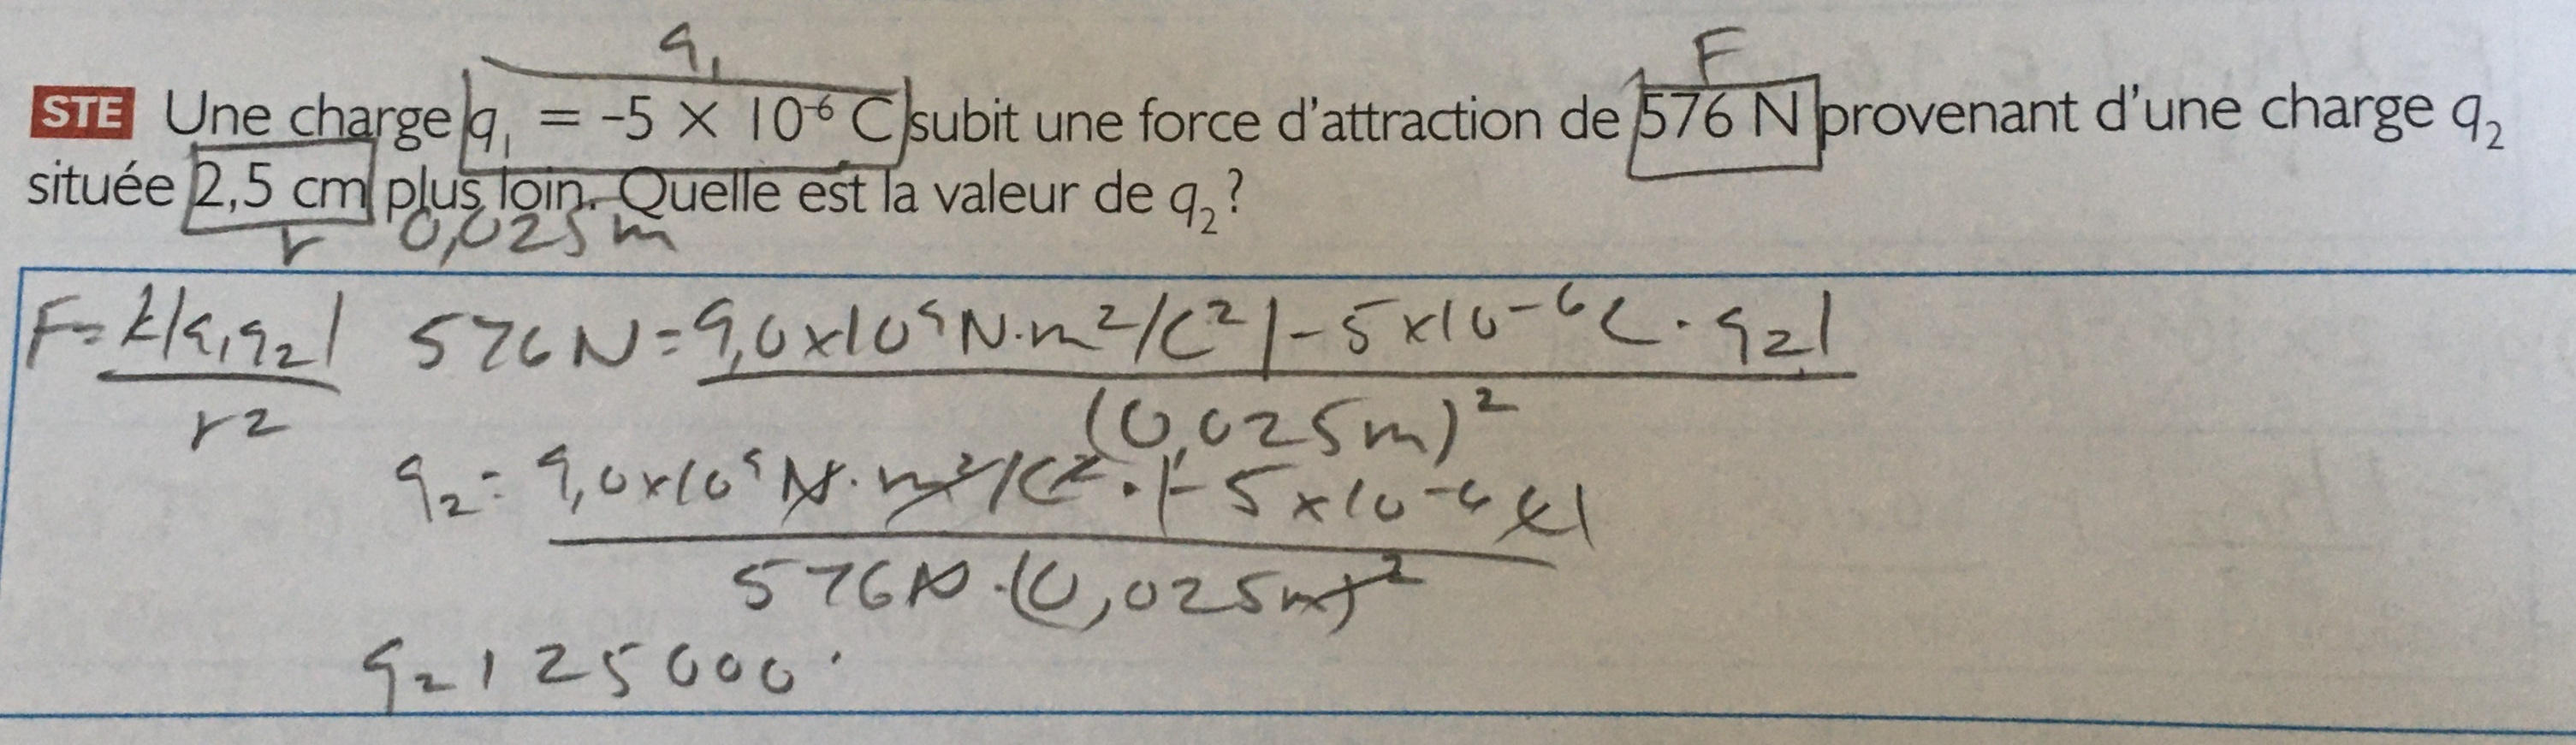 q₁ F
STE Une charge q₁ = -5 × 10⁻⁶ C subit une force d'attraction de 576 N provenant d'une charge q₂
située 2,5 cm plus loin. Quelle est la valeur de q₂?
r 0,025 m
F = k|q₁q₂| / r² 576 N = 9,0x10⁹ N·m²/C² |-5x10⁻⁶ C · q₂| / (0,025m)²
q₂ = 9,0x10⁹ N·m²/C² · |-5x10⁻⁶ C| / 576N·(0,025m)²
q₂ 125000